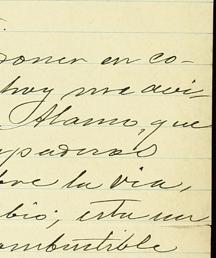 poner en co-
hoy me avi-
Alamo, que
apaderas
bre la via,
bio; esta un
ombustible